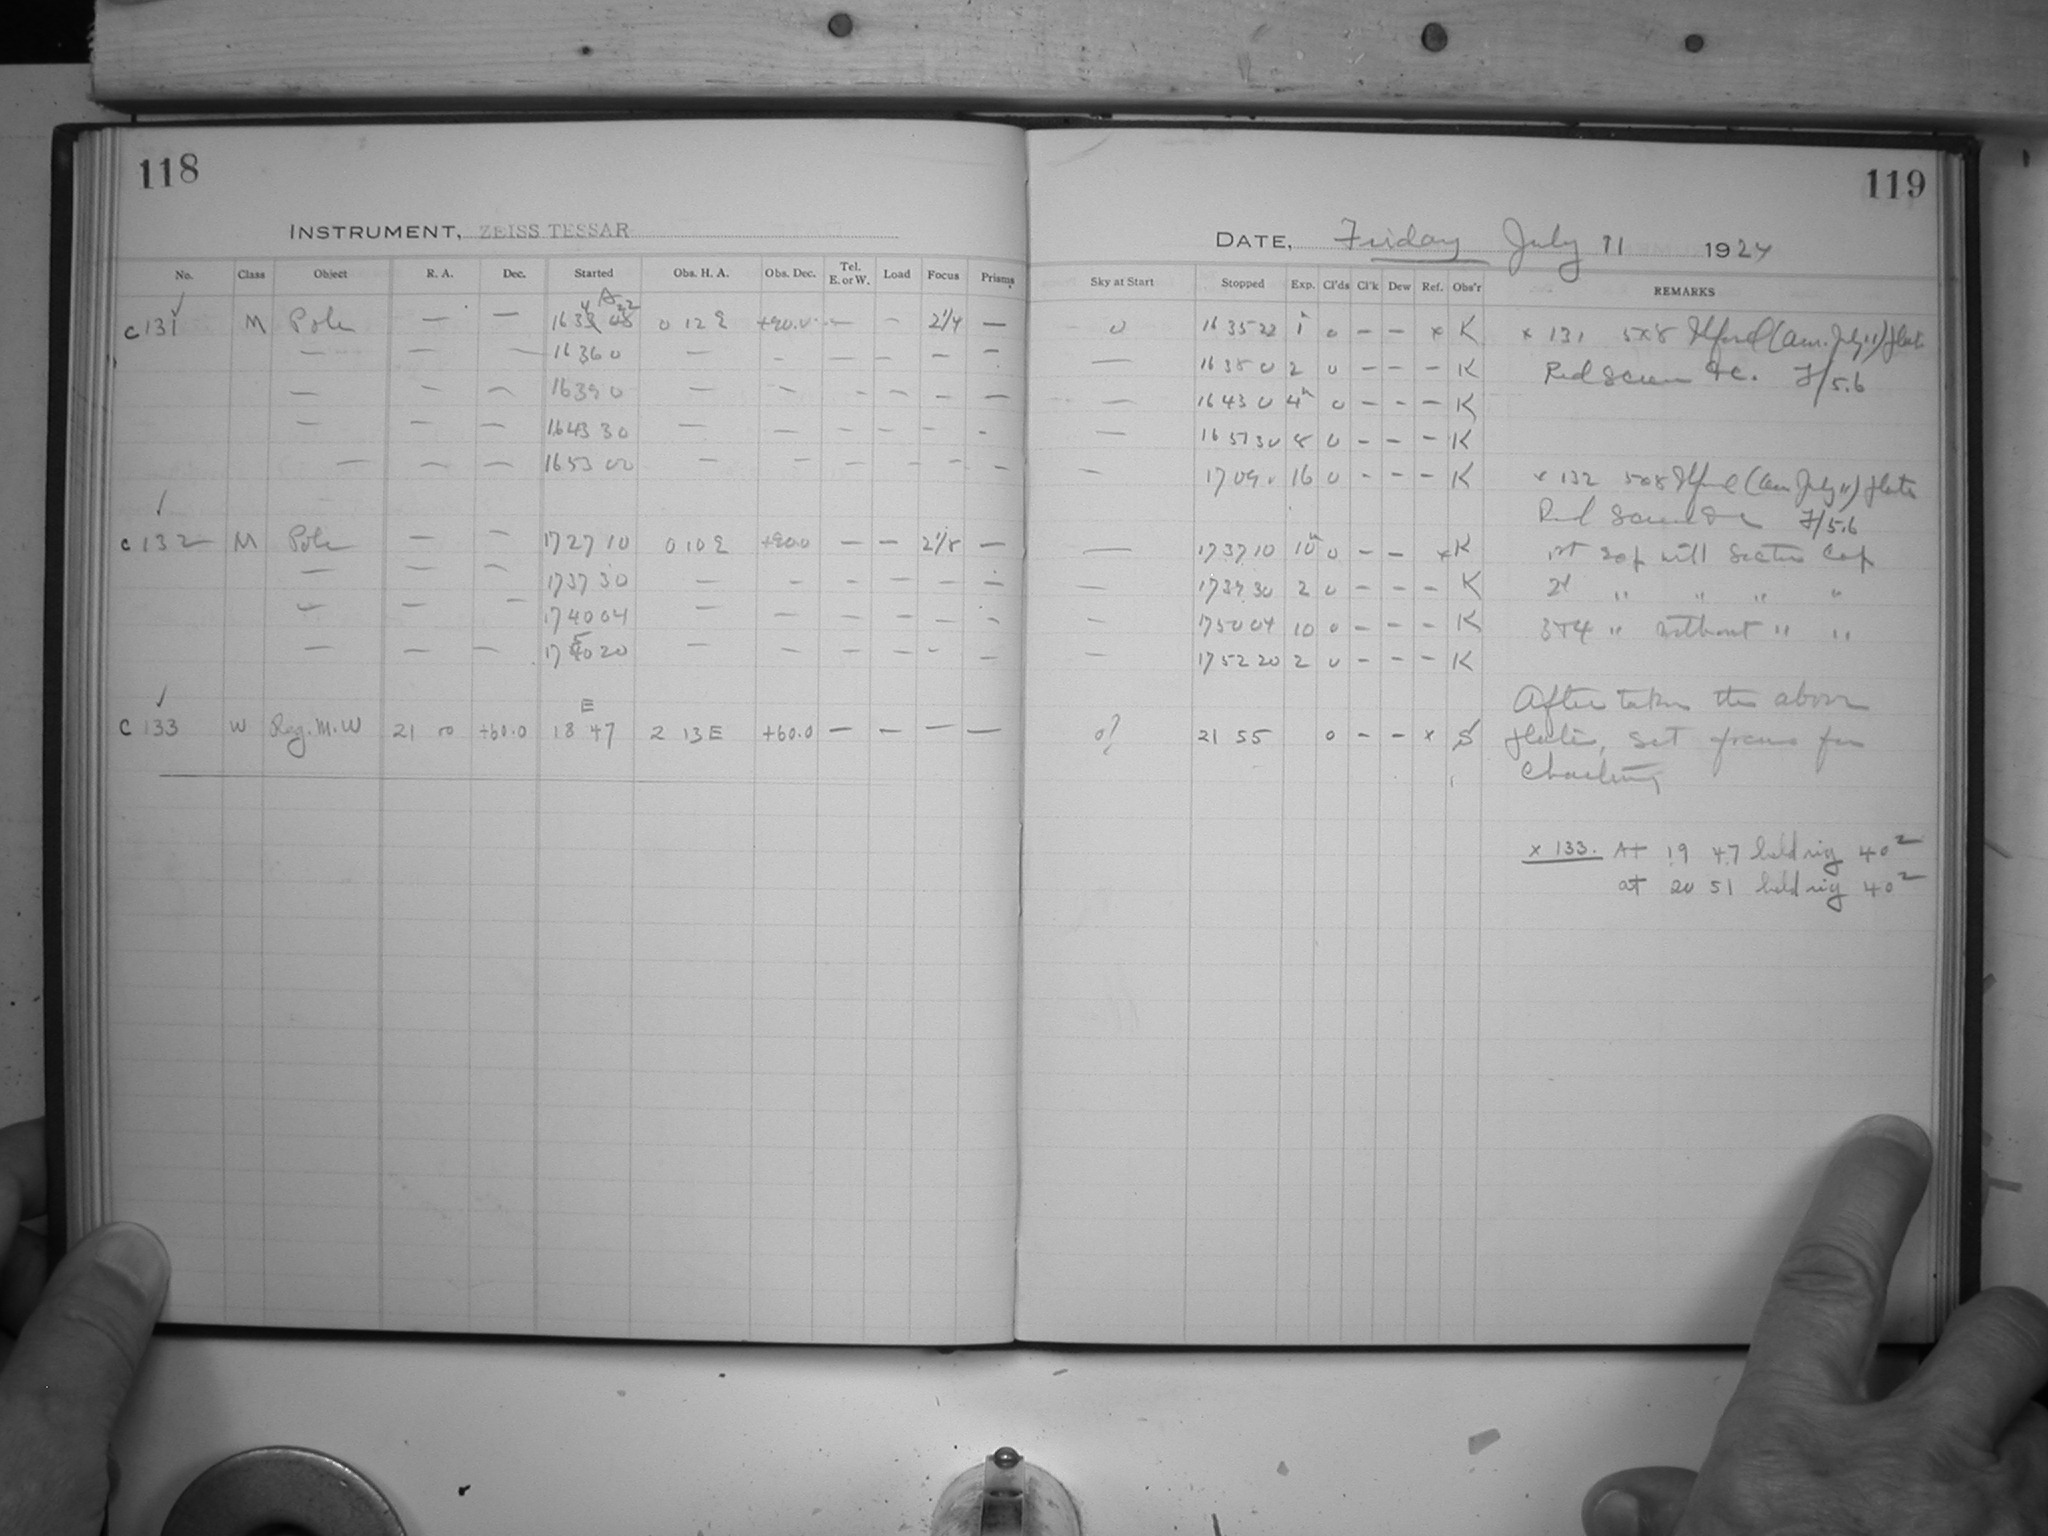 118
INSTRUMENT, ZEISS TESSAR
No. Class Object R. A. Dec. Started Obs. H. A. Obs. Dec. Tel. E. or W. Load Focus Prisms
c 131 M Pole — — 0 12 E +90.0 — - 2 1/4 —
— — — 16 36 0 — - — — — —
— — — 16 39 0 — — — — — —
— — — 16 43 30 — — — — — -
— — — 16 53 00 — — — - — —
c 132 M Pole — — 17 27 10 0 10 E +90.0 — — 2 1/8 —
— — — 17 37 30 — — — — — —
— — — 17 40 04 — — — — — —
— — — 17 50 20 — — — — — —
E
c 133 W Reg. M. W 21 00 +60.0 18 47 2 13 E +60.0 — — — —
119
DATE, Friday July 11 1924
Sky at Start Stopped Exp. Cl'ds Cl'k Dew Ref. Obs'r REMARKS
0 16 35 22 1 0 – – x K x 131 5x8 Ilford
— 16 38 0 2 0 – – – K Red Screen &c. F/5.6
— 16 43 0 4 0 – – – K
— 16 51 30 8 0 – – – K
— 17 09 0 16 0 – – – K x 132 5x8 Ilford
Red Screen F/5.6
— 17 37 10 10 0 – – x K 1st Exp with Cap
— 17 39 30 2 0 – – – K 2d " " " "
— 17 50 04 10 0 – – – K 3+4 " Without " "
— 17 52 20 2 0 – – – K
After taken the above
0? 21 55 0 – – x S plates, set focus for
Charting
x 133. At 19 47 held rig 40
at 20 51 held rig 40